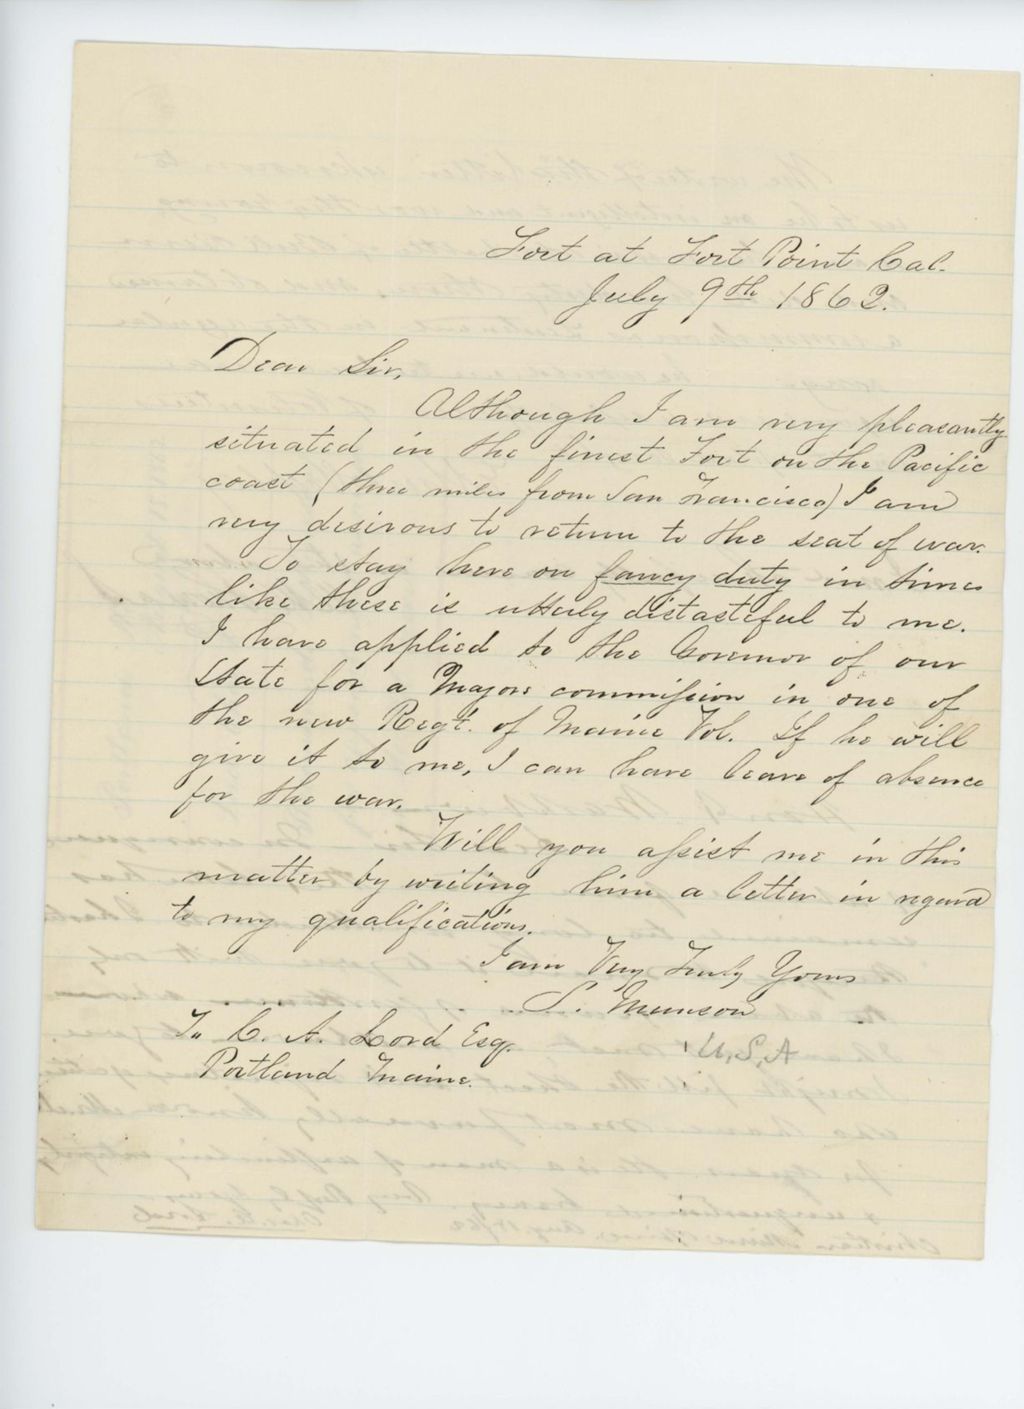 Fort at Fort Point Cal.
July 9th 1862.
Dear Sir,
Although I am very pleasantly
situated in the finest Fort on the Pacific
coast (three miles from San Francisco) I am
very desirous to return to the seat of war.
To stay here on fancy duty in times
like these is utterly distasteful to me.
I have applied to the Governor of our
State for a Majors commission in one of
the new Regt. of Maine Vol. If he will
give it to me, I can have leave of absence
for the war.
Will you assist me in this
matter by writing him a letter in regard
to my qualifications.
I am Very Truly Yours
S. Munson
U.S.A
To C. A. Lord Esq.
Portland Maine.